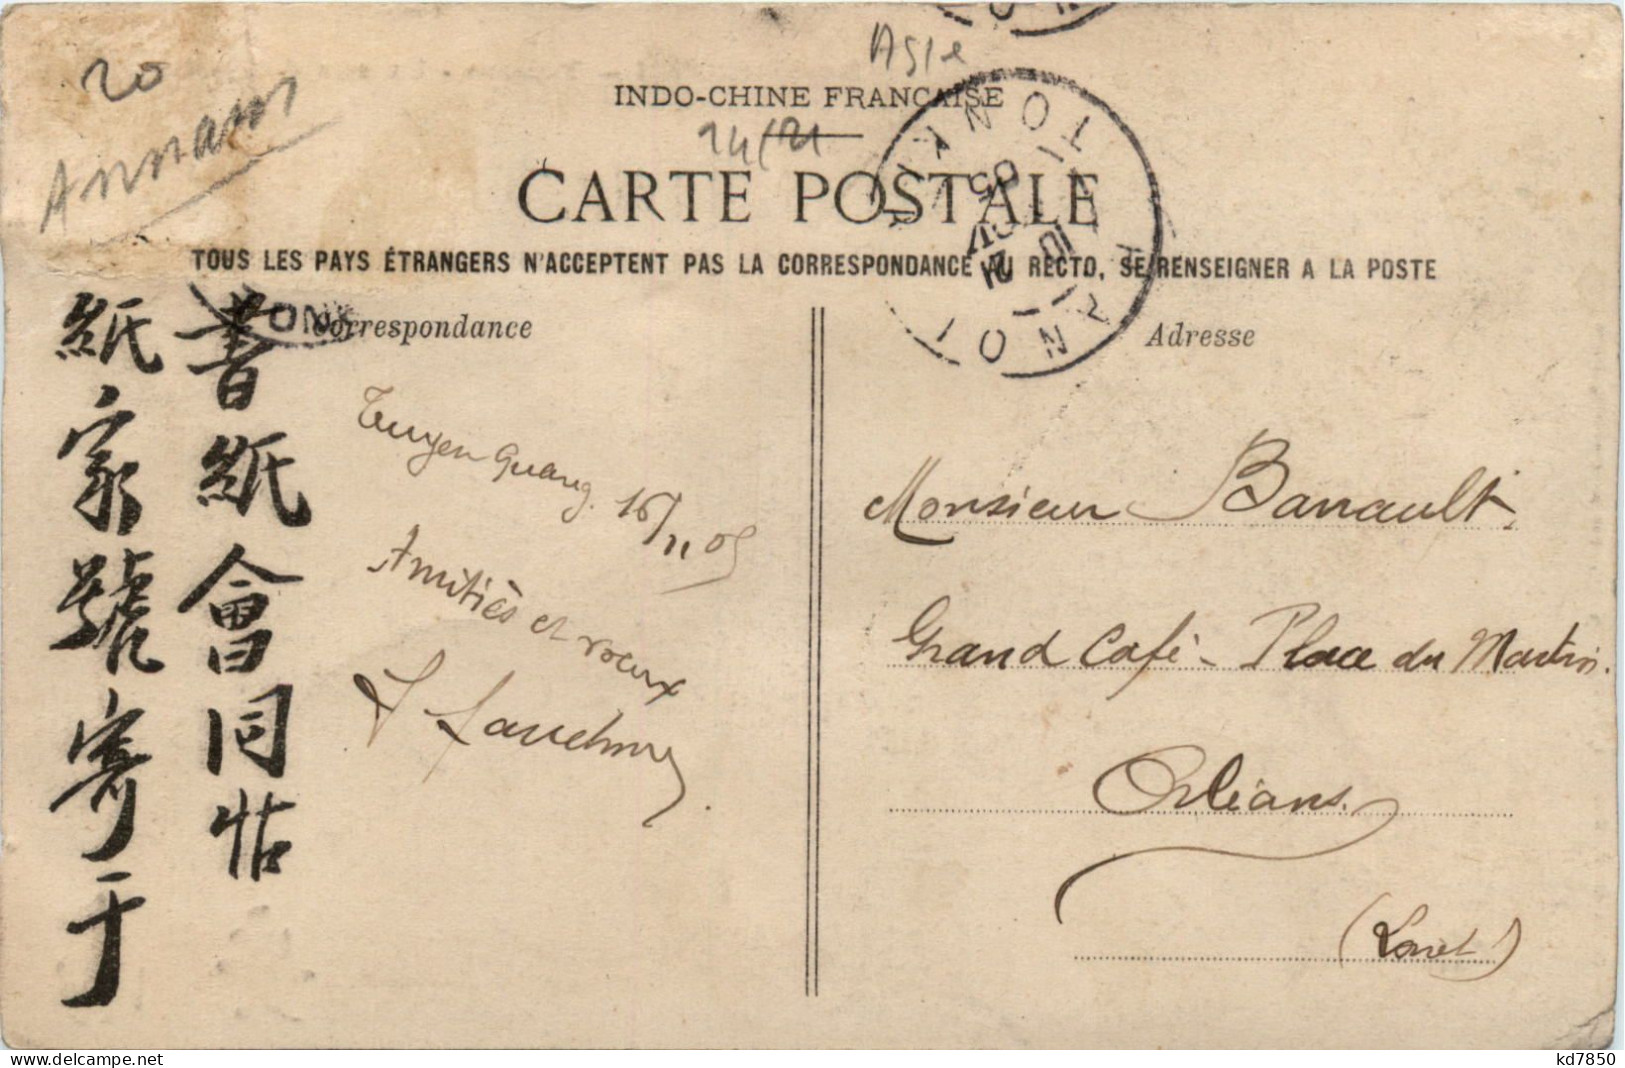 20
Annam
Asie
INDO-CHINE FRANÇAISE
24/21
CARTE POSTALE
TOUS LES PAYS ÉTRANGERS N'ACCEPTENT PAS LA CORRESPONDANCE AU RECTO, SE RENSEIGNER A LA POSTE
HANOI
TONKIN
Correspondance
Adresse
書紙會同帖
紙家號寄于
Tuyen Quang. 16/11 05
Amitiés et voeux
Monsieur Banault
Grand Café - Place du Martroi.
Orléans.
(Loiret)
kd7850